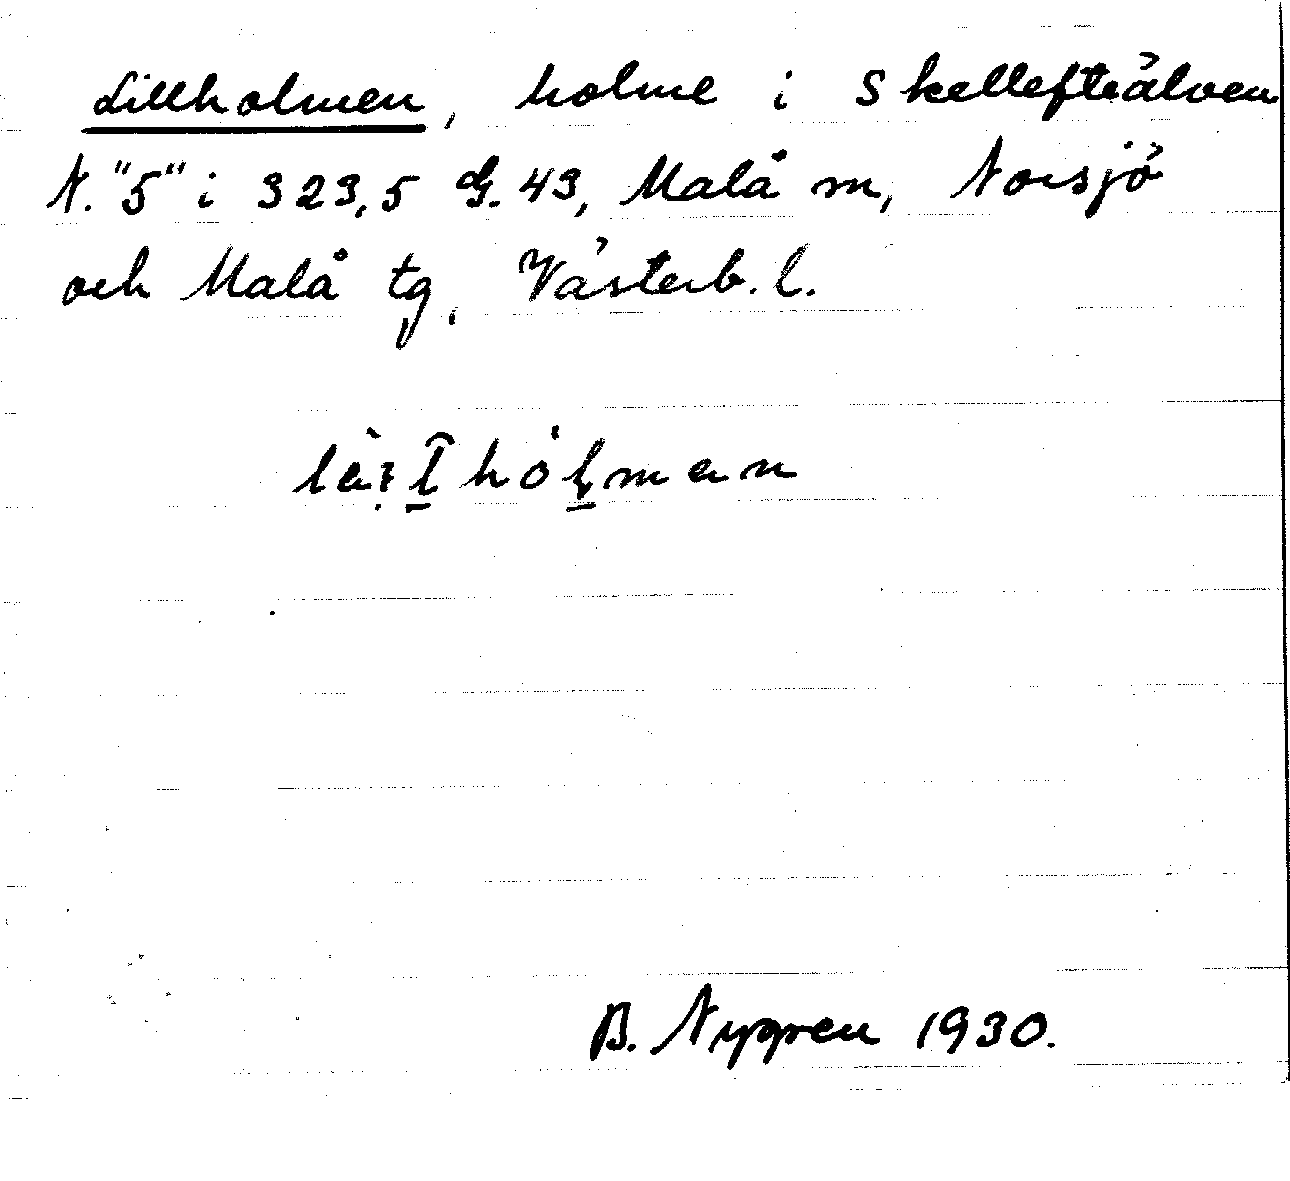 Lillholmen, holme i Skellefteälven
N. "5" i 323,5 G. 43, Malå m, Norsjö
och Malå tg, Västerb. l.
B. Nygren 1930.